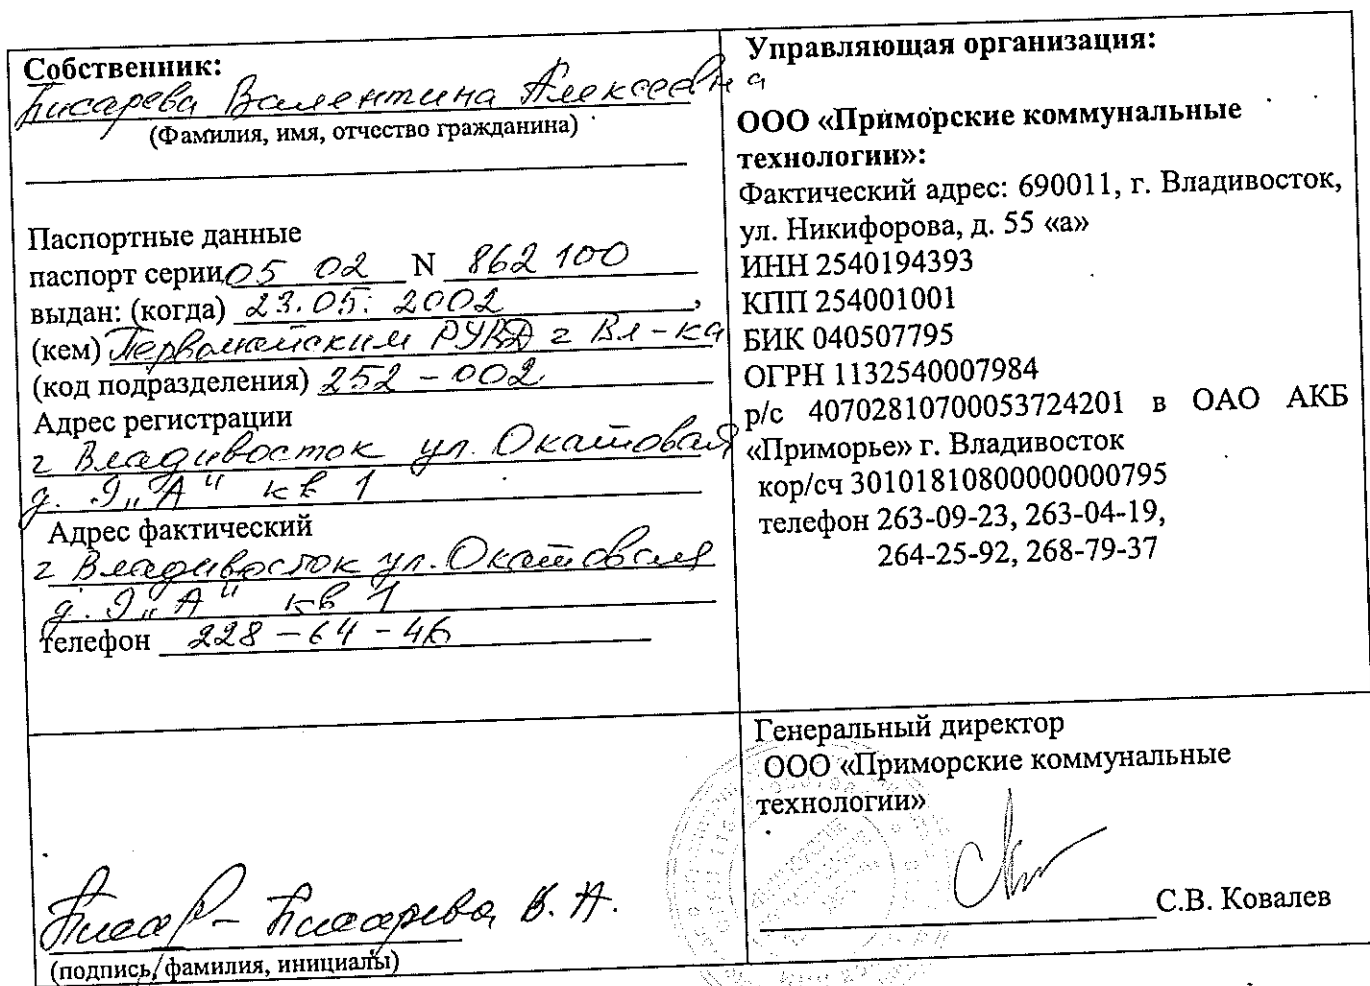 Собственник:
Писарева Валентина Алексеевна
(Фамилия, имя, отчество гражданина)
Паспортные данные
паспорт серии 05 02 N 862 100
выдан: (когда) 23.05. 2002,
(кем) Первомайским РУВД г Вл-ка
(код подразделения) 252-002
Адрес регистрации
г Владивосток ул. Окатовая
д. 9 „А" кв 1
Адрес фактический
г Владивосток ул. Окатовая
д. 9 „А" кв 1
телефон 228-64-46
Управляющая организация:
ООО «Приморские коммунальные
технологии»:
Фактический адрес: 690011, г. Владивосток,
ул. Никифорова, д. 55 «а»
ИНН 2540194393
КПП 254001001
БИК 040507795
ОГРН 1132540007984
р/с 40702810700053724201 в ОАО АКБ
«Приморье» г. Владивосток
кор/сч 30101810800000000795
телефон 263-09-23, 263-04-19,
264-25-92, 268-79-37
Писар- Писарева В. А.
(подпись/фамилия, инициалы)
Генеральный директор
ООО «Приморские коммунальные
технологии»
С.В. Ковалев